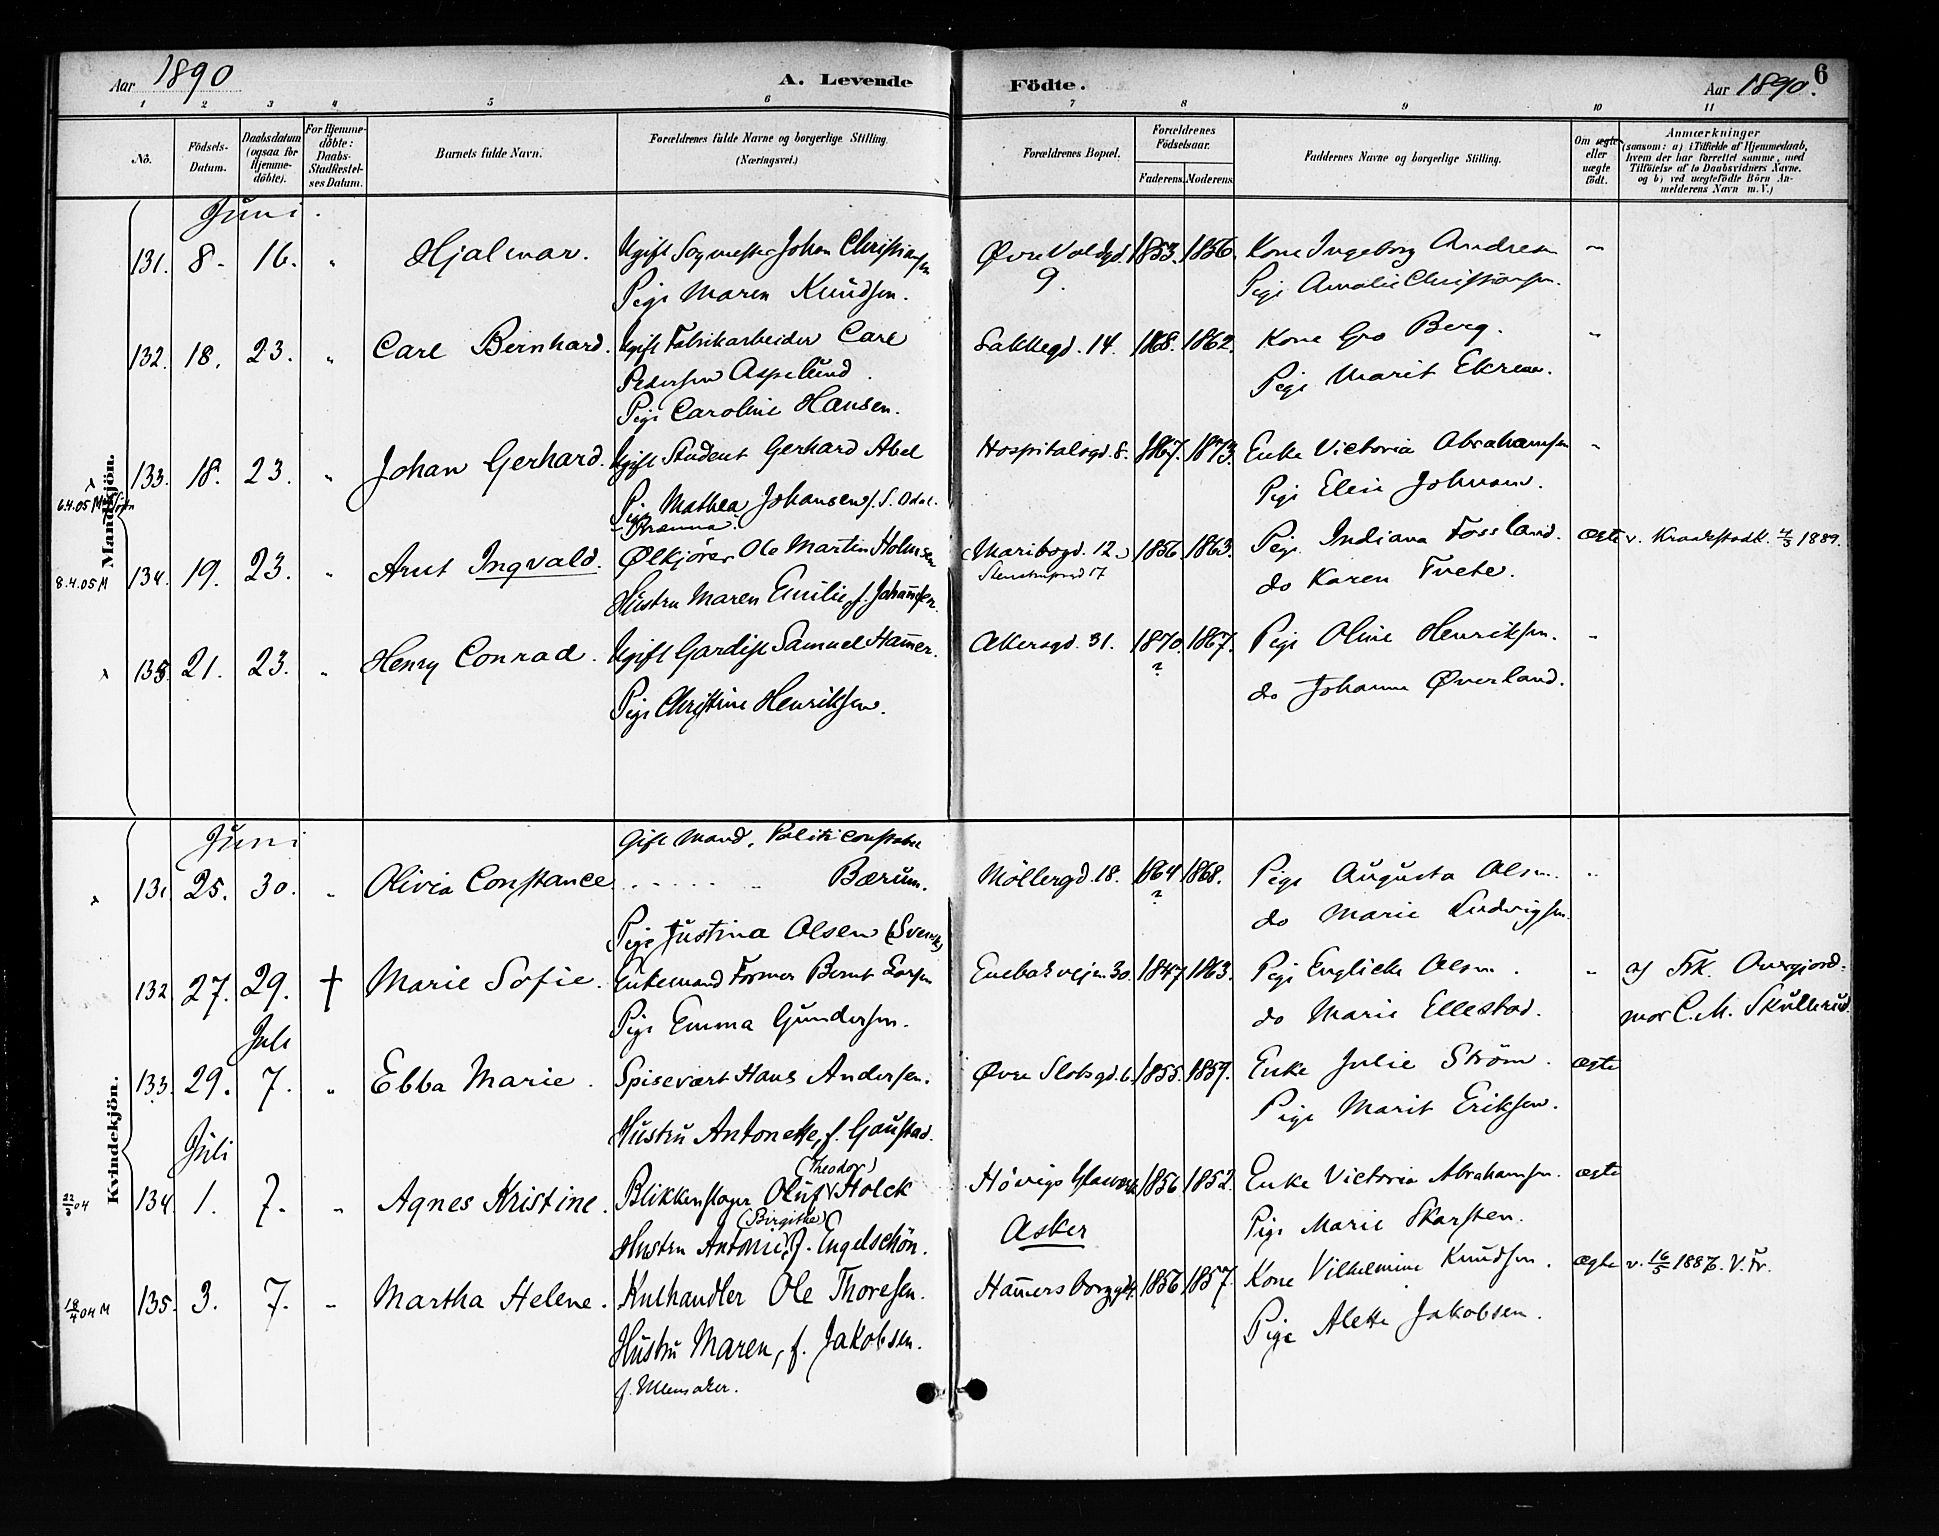 Aar 1890
A. Levende Födte.
Aar 1890.
6
1 2 3 4 5 6 7 8 9 10 11
No.
Födsels-Datum.
Daabsdatum (ogsaa for Hjemme-döbte).
For Hjemme-döbte: Daabs-Stadfæstel-ses Datum.
Barnets fulde Navn.
Forældrenes fulde Navne og borgerlige Stilling. (Næringsvei.)
Forældrenes Bopæl.
Forældrenes Födselsaar.
Faderens. Moderens.
Faddernes Navne og borgerlige Stilling.
Om ægte eller uægte födt.
Anmærkninger
(saasom: a) i Tilfælde af Hjemmedaab, hvem der har forrettet samme, med Tilföielse af to Daabsvidners Navne. og b) ved uægtefödte Börn An-melderens Navn m. V.)
Mandkjön.
Juni.
131. 8. 16. " Hjalmar. Ugift Johan Christiansen Øvre Voldgd. 1853. 1856. Kone Ingeborg Andresen "
Pige Maren Knudsen. 9. Pige Amalie Christiansen.
132. 18. 23. " Carl Bernhard. Ugift Fabrikarbeider Carl Lakkegd. 14. 1868. 1862. Kone Gro Berg. "
Pedersen Aspelund. Pige Marit Ekren.
Pige Caroline Hansen.
133. 18. 23. " Johan Gerhard. Ugift Student Gerhard Abel Hospitalsgd. 8. 1867. 1873. Enke Victoria Abrahamsen "
6.4.05 M
Pige Mathea Johansen /S. Odal. Pige Elen Johnsen.
134. 19. 23. " Arnt Ingvald. Ølkjörer Ole Martin Holmsen Maribogd. 12. 1856. 1863. Pige Indiana Fossland. ægte v. Kraakstadk. 1889.
8.4.05 M
Hustru Maren Emilie, f. Johannsen. do Karen Tvete.
135. 21. 23. " Henry Conrad. Ugift Gardist Samuel Hamer. Akersgd. 31. 1870. 1867. Pige Oline Henriksen. "
Pige Christine Henriksen. ? do Johanne Øverland.
Kvindekjön.
Juni
Gift Mand, Politiconstabel
131. 25. 30. " Olivia Constance Bærum. Möllergd. 18. 1864 1868. Pige Augusta Olsen. "
Pige Justina Olsen (Svensk) ? do Marie Ludvigsen.
132 27. 29. † Marie Sofie. Enkemand Former Bernt Larsen Enebakvejen 30. 1847. 1863. Pige Olsen. " af Frk.
Pige Emma Gundersen. do Marie Ellestad. mor C. M. Skullerud.
Juli
133. 29. 7. " Ebba Marie. Spisevært Hans Andersen. Øvre Slotsgd. 6. 1855. 1859. Enke Julie Ström. ægte
Hustru Antonette, f. Gaustad. Pige Marit Eriksen.
Juli
(Theodor)
134. 1. 7. " Agnes Kristine. Blikkenslager Oluf Holck Hövigs Glasværk 1856 1852. Enke Victoria Abrahamsen. ægte
(Birgithe)
Hustru Antonie, f. Engelschön. Asker Pige Marie Skarsten.
135. 3. 7. " Martha Helene. Kulhandler Ole Thoresen. Hamersborggd. 1856 1857. Kone Vilhelmine Knudsen. ægte v. 16/5 V. Fr.
18/4 04 M
Hustru Maren, f. Jakobsen. Pige Alette Jakobsen.